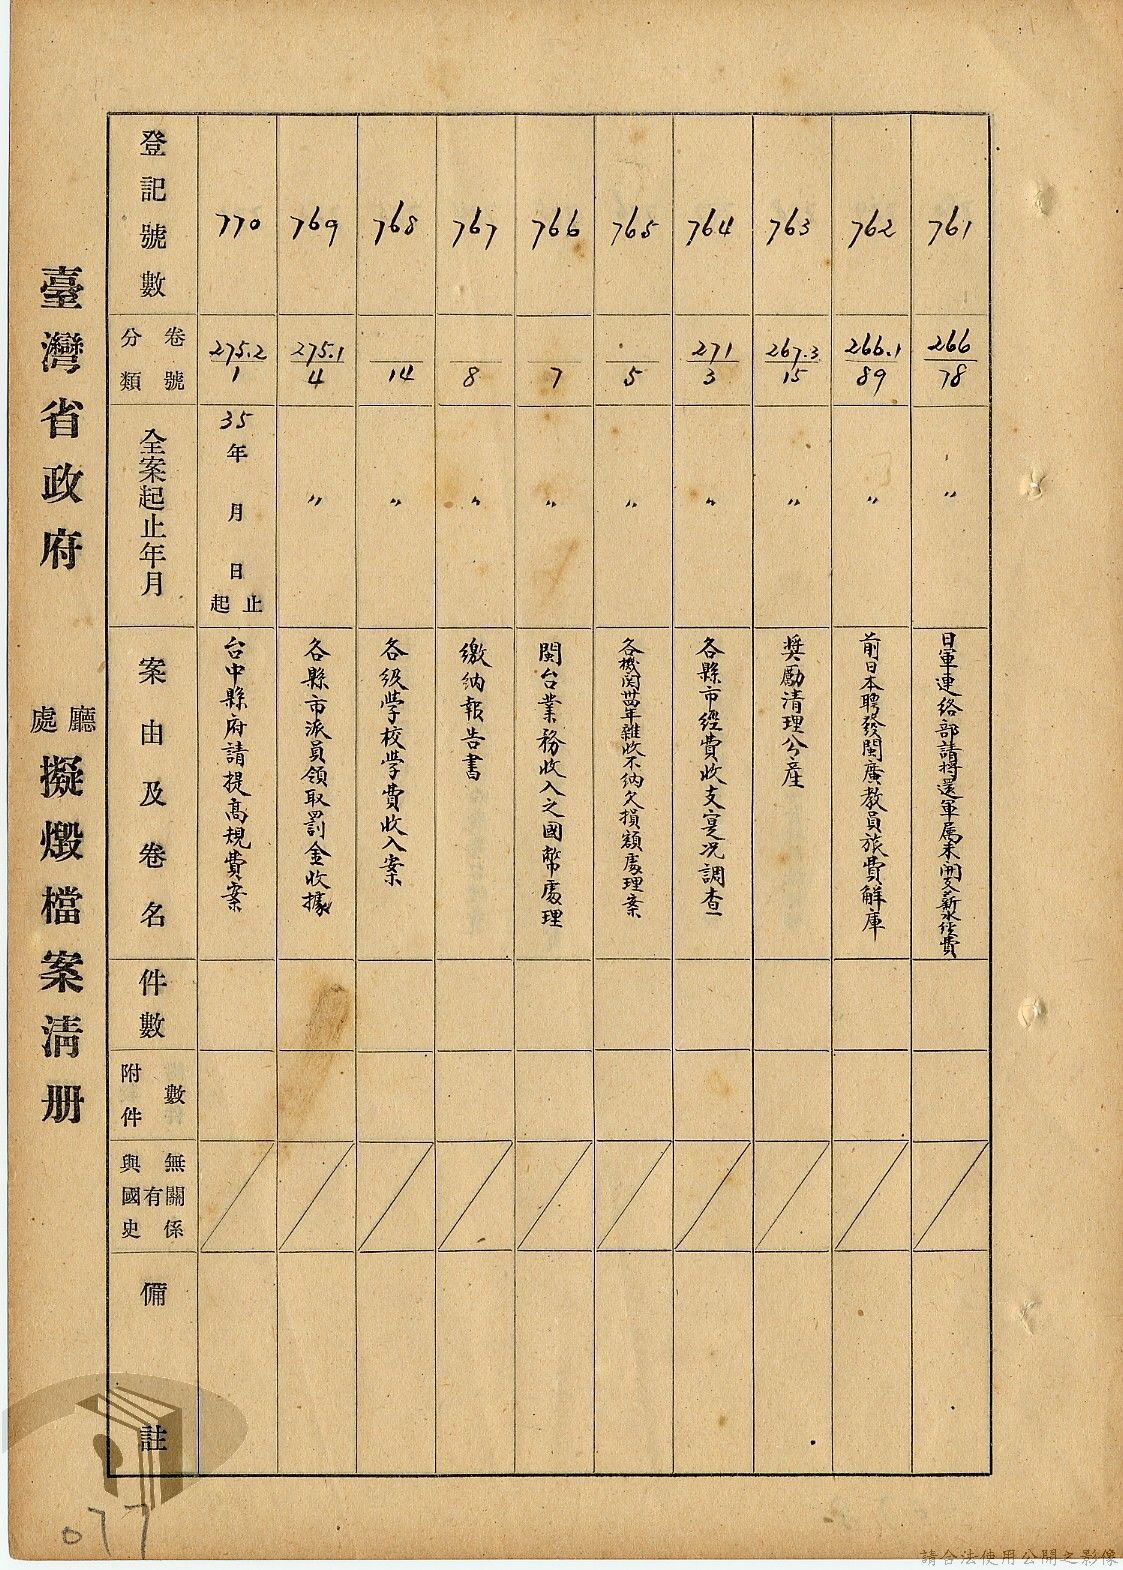 臺灣省政府
廳
處
擬燬檔案清册
登記號數
770
769
768
767
766
765
764
763
762
761
分類
卷號
275.2
1
275.1
4
14
8
7
5
271
3
267.3
15
266.1
89
266
78
全案起止年月
35
年
月
日
起止
〃
〃
〃
〃
〃
〃
〃
〃
〃
案由及卷名
台中縣府請提高規費案
各縣市派員領取罰金收據
各級學校學費收入案
繳納報告書
閩台業務收入之國幣處理
各機関卅四年雜收不納欠損額處理案
各縣市經費收支寔况調查
獎勵清理公產
前日本聘發閩廣教員旅費解庫
日軍連絡部請將還軍属未開支薪水經費
件數
附件
數
與國史
有
無關係
備註
077
請合法使用公開之影像